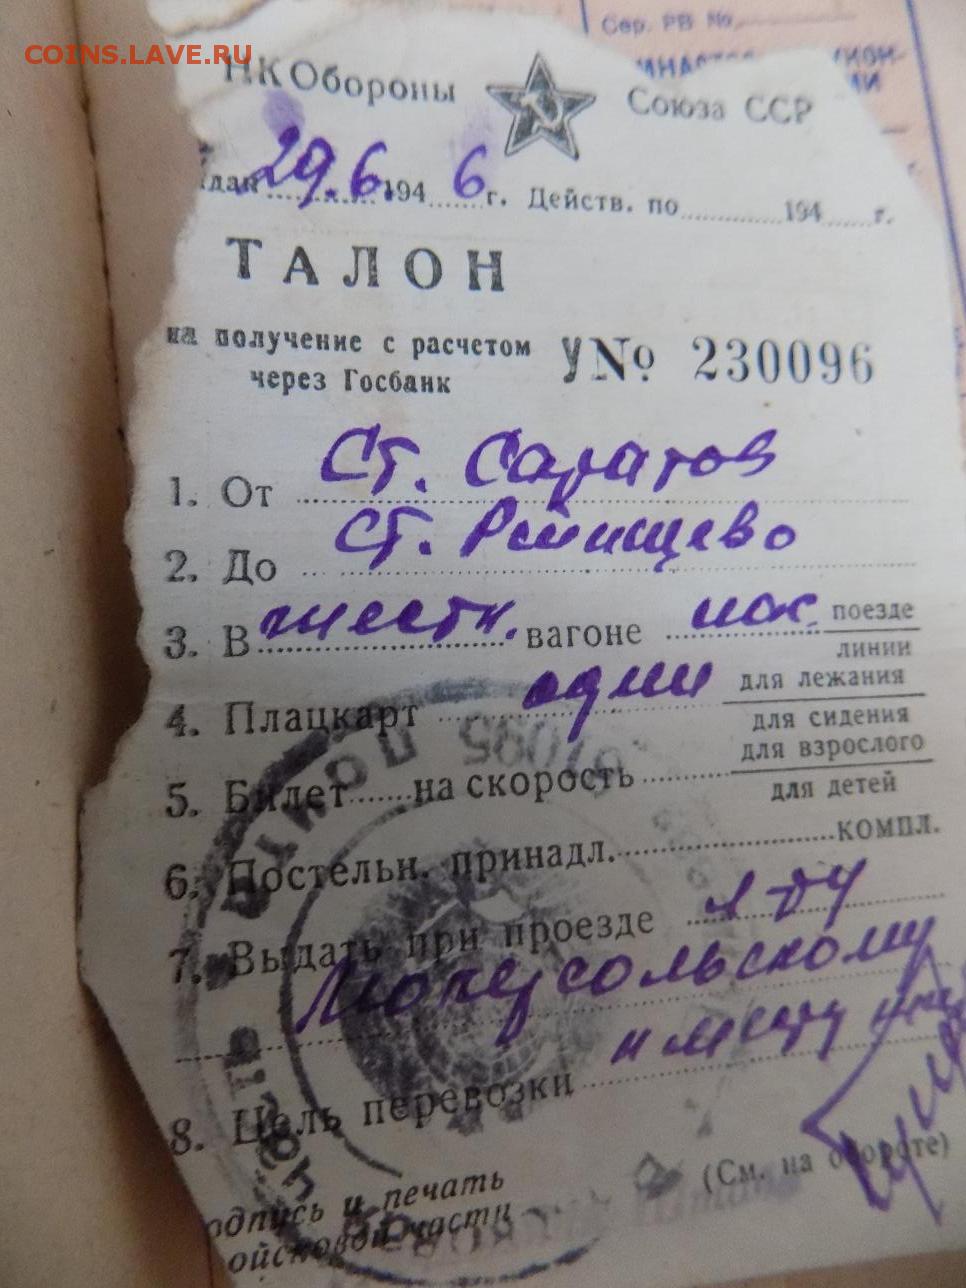 COINS.LAVE.RU
Сер. РВ No
НКОбороны Союза ССР
29.6.1946 г. Действ. по 194 г.
ТАЛОН
на получение с расчетом
через Госбанк
У№ 230096
1. От ст. Саратов
2. До ст. Ртищево
3. В жестк. вагоне пас. поезде
линии
4. Плацкарт один для лежания
для сидения
5. Билет на скорость для взрослого
для детей
6. Постельн. принадл. компл.
7. Выдать при проезде
8. Цель перевозки к месту
(См. на обороте)
подпись и печать
войсковой части